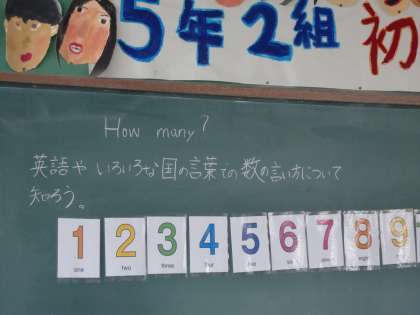 5年2組 初
How many?
英語や いろいろな国の言葉での数の言い方について
知ろう。
1 2 3 4 5 6 7 8 9
one two three four five six seven eight